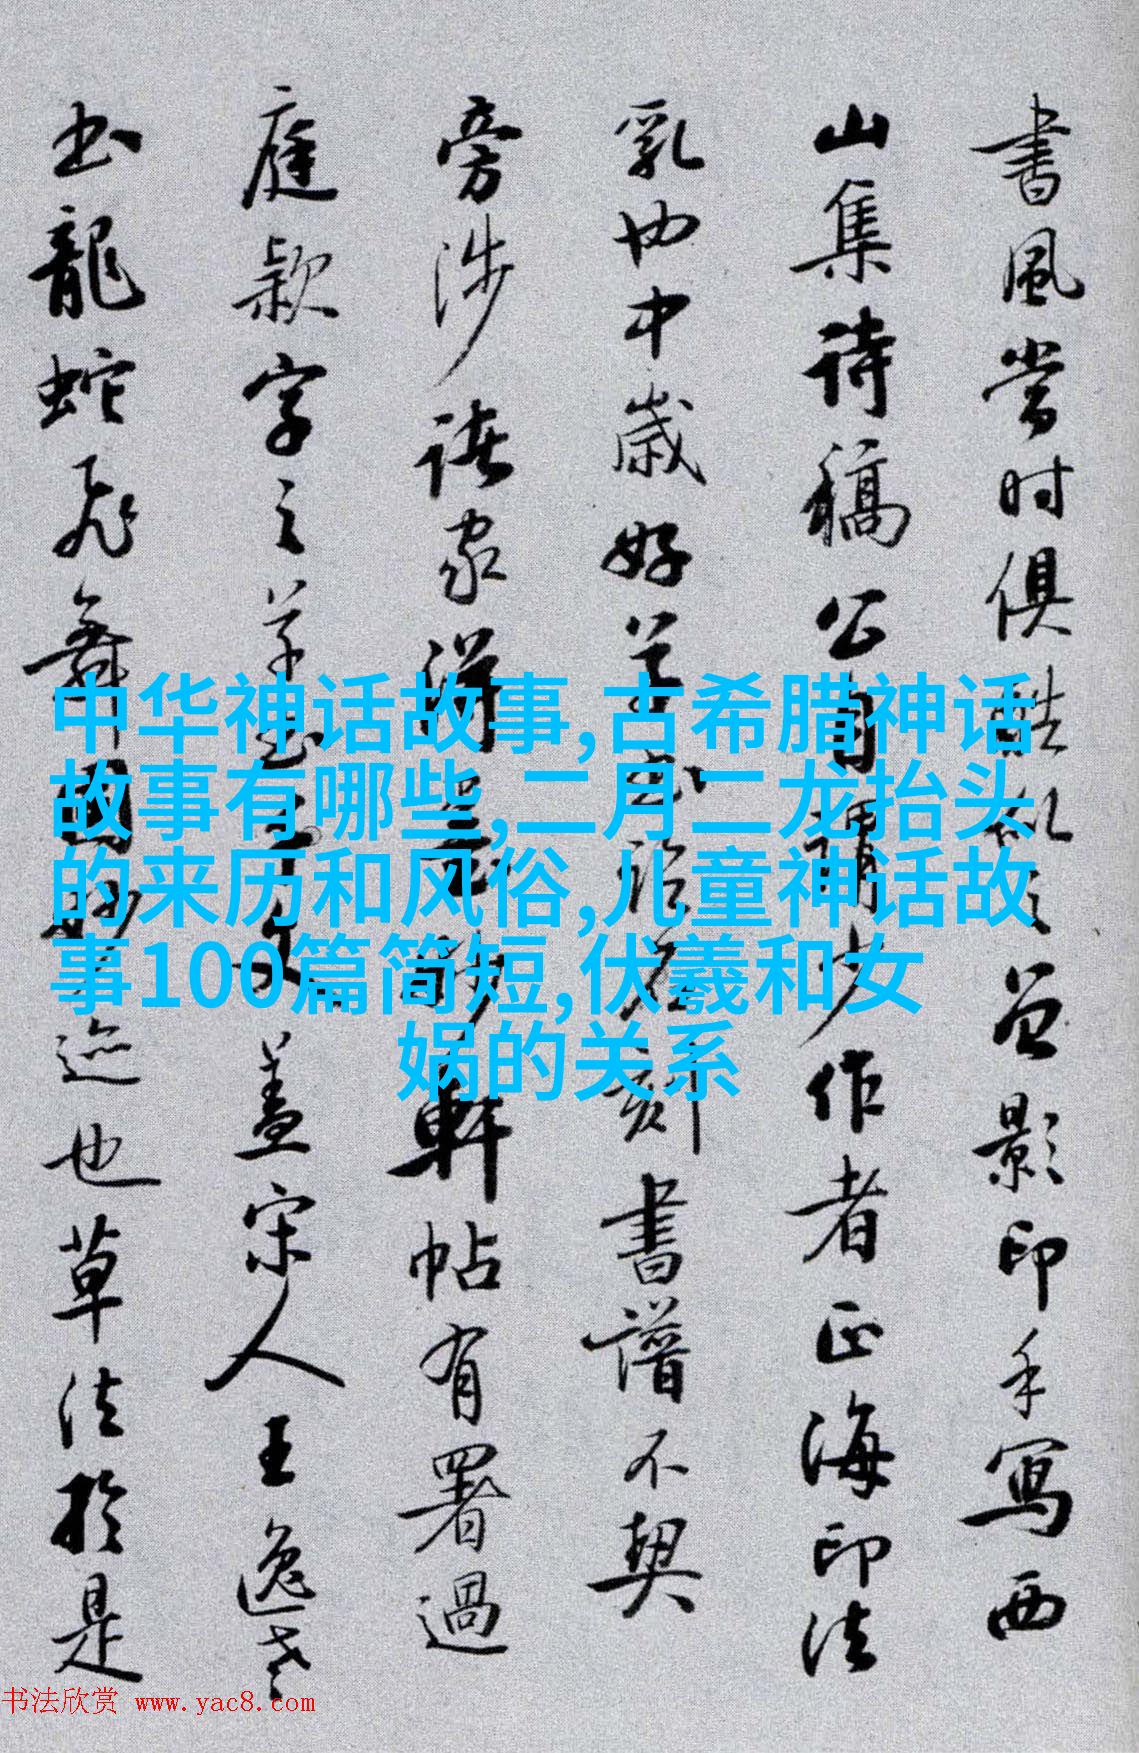 書風當時俱
影印手寫西
山集詩稿公自謂少作者正海印法
乳也中歲好
刻書譜不契
旁涉諸家
軒帖有署過
庭款字之
蓋宋人王逸老
書龍蛇飛舞國
迹也草法於是
中华神话故事,古希腊神话
故事有哪些,二月二龙抬头
的来历和风俗,儿童神话故
事100篇简短,伏羲和女
娲的关系
书法欣赏 www.yac8.com